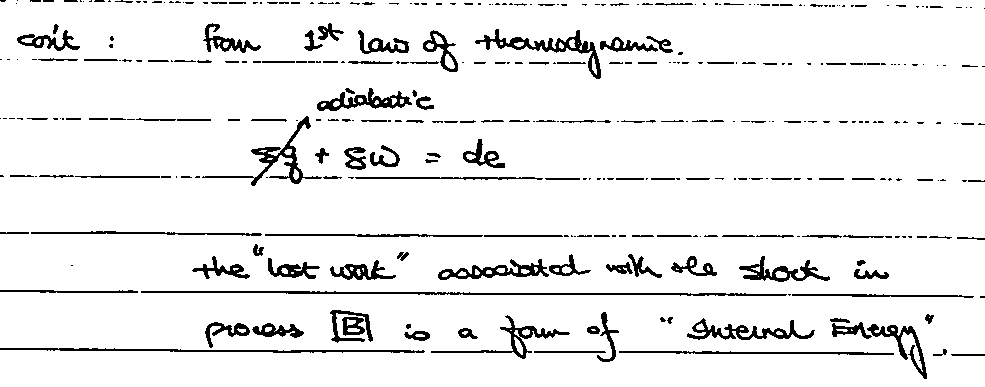 con't : from 1st law of thermodynamic.
adiabatic
δq + δw = de
the "lost work" associated with the shock in
process B is a form of "Internal Energy".